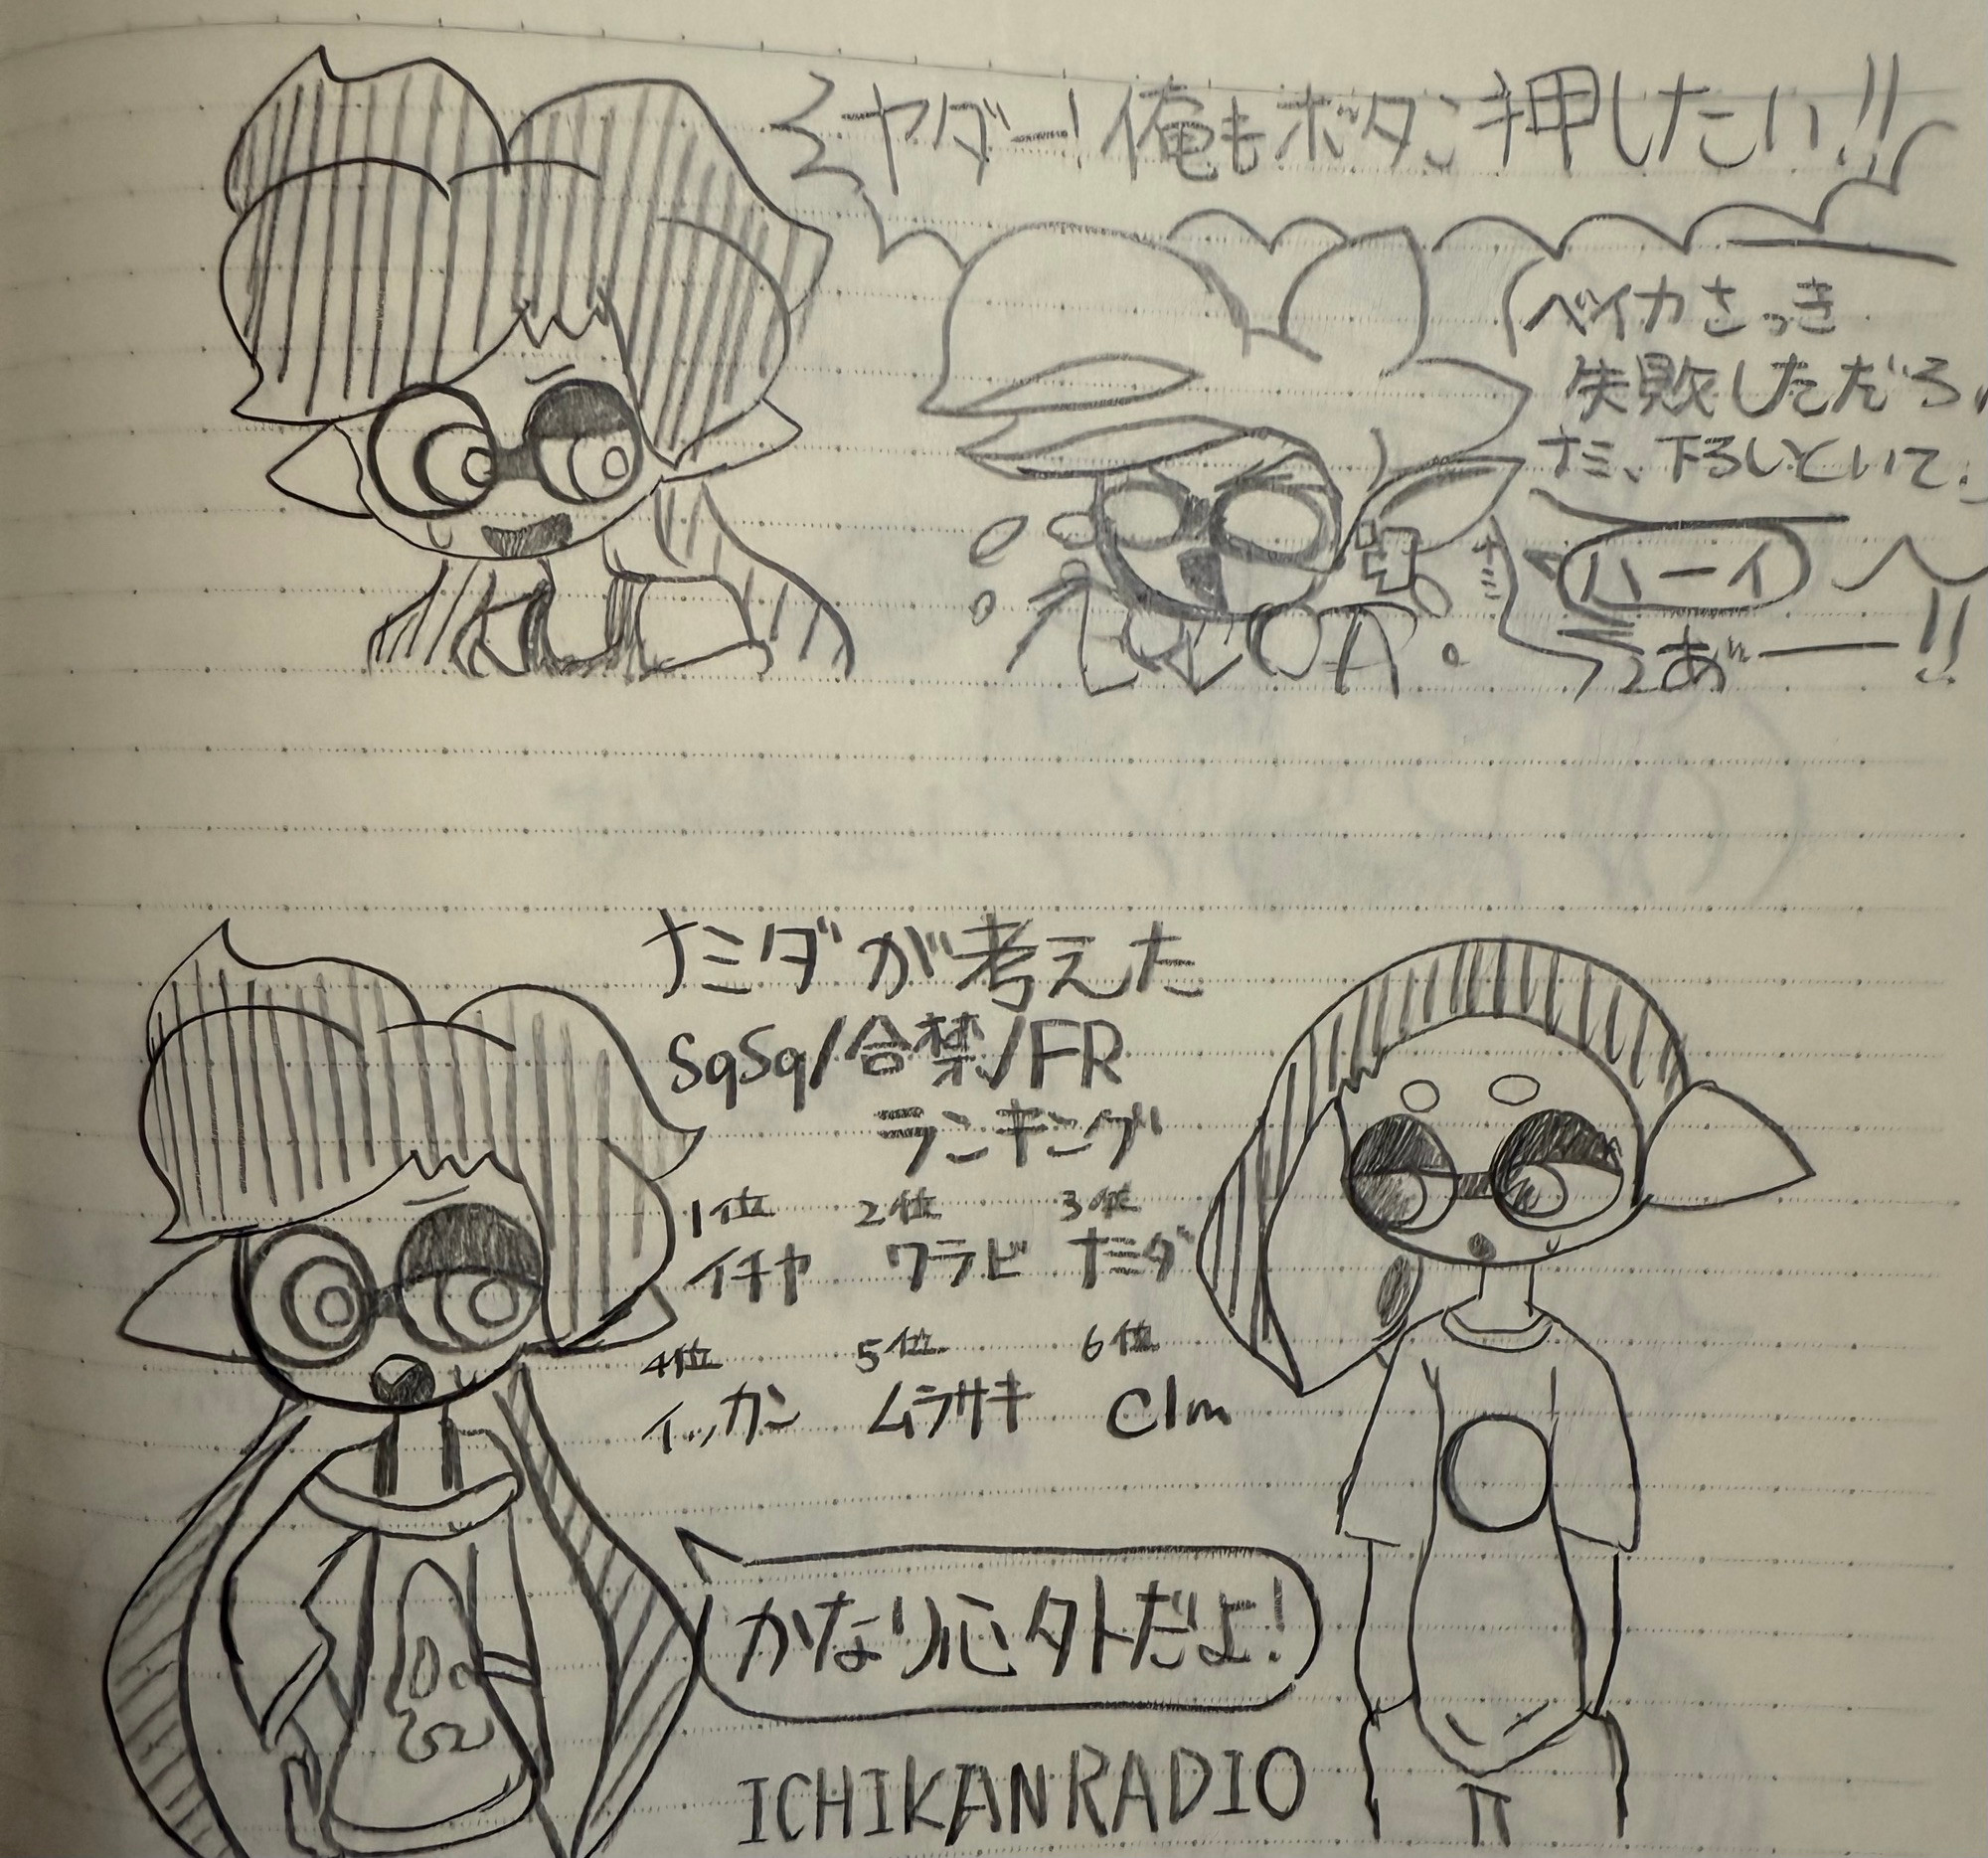 ヤダー!俺もボタン押したい!!
ベイカさっき
失敗しただろ,
ナミ、下ろしといて。
ハーイ
あ゛ー!!
ナミダが考えた
SqSq/合禁/FR
ランキング
1位 2位 3位
イチヤ ワラビ ナミダ
4位 5位 6位
イッカン ムラサキ Clm
かなり心外だよ!
ICHIKANRADIO